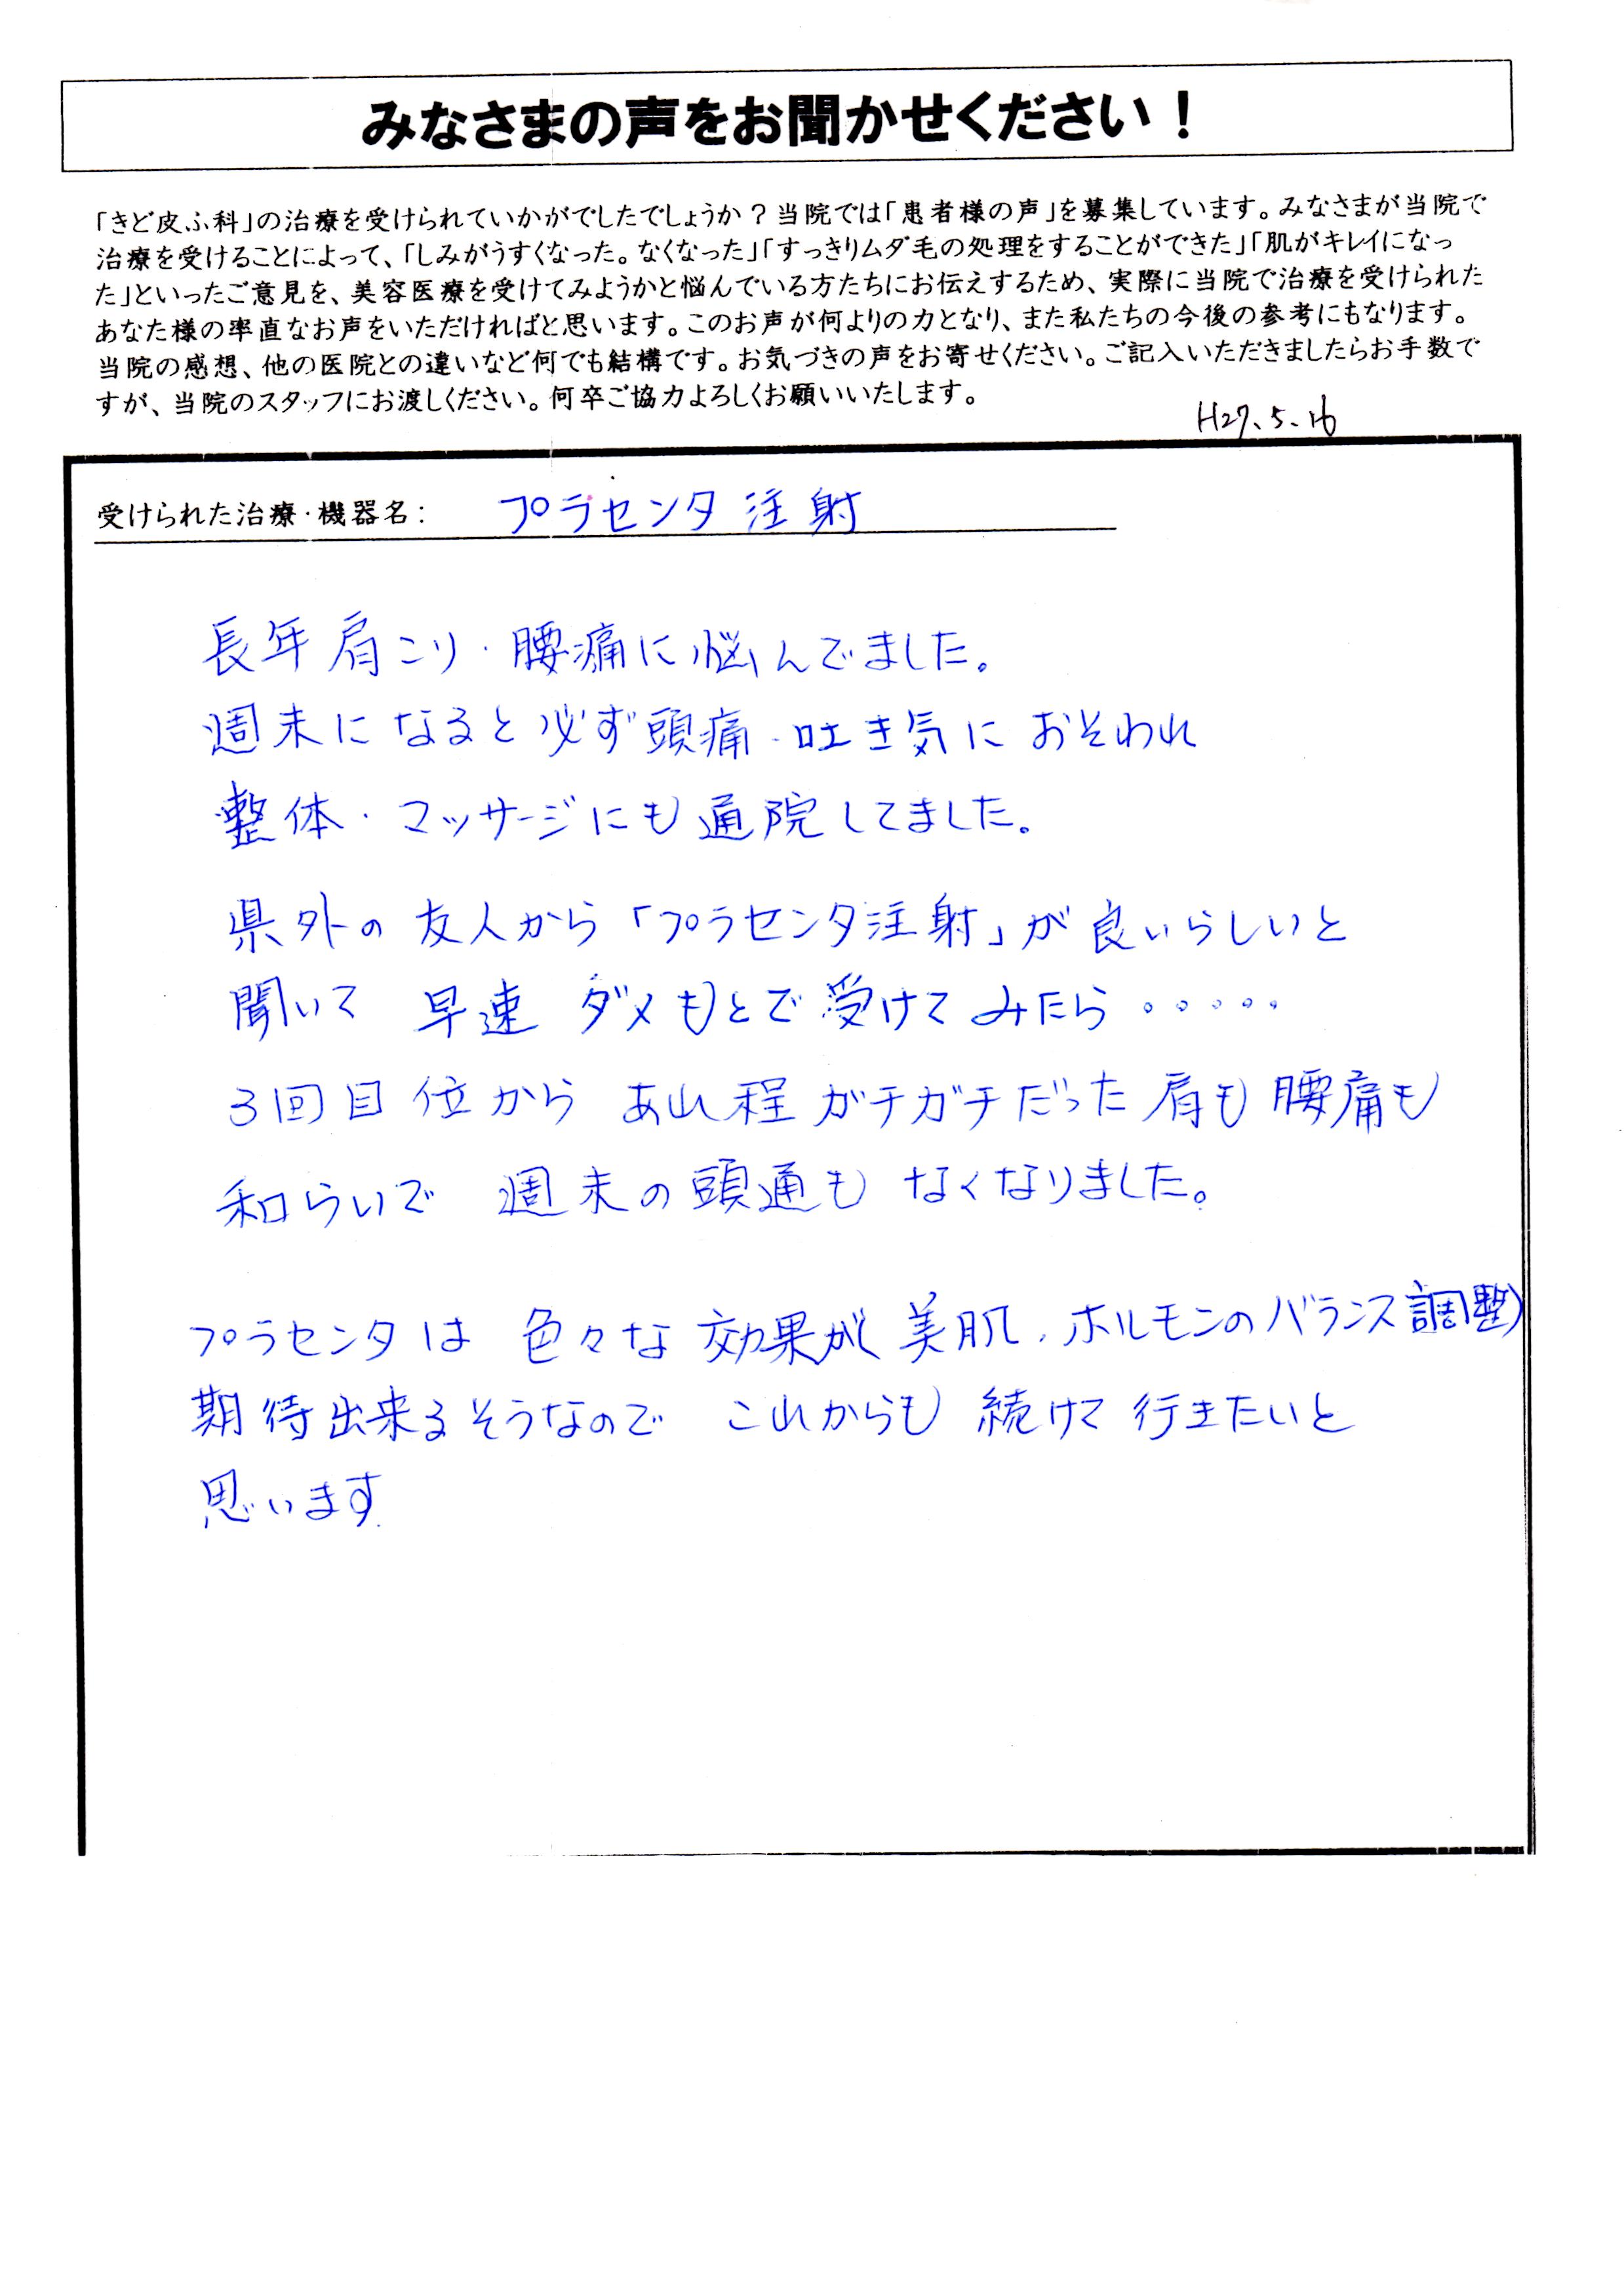 みなさまの声をお聞かせください！
「きど皮ふ科」の治療を受けられていかがでしたでしょうか？当院では「患者様の声」を募集しています。みなさまが当院で
治療を受けることによって、「しみがうすくなった。なくなった」「すっきりムダ毛の処理をすることができた」「肌がキレイになっ
た」といったご意見を、美容医療を受けてみようかと悩んでいる方たちにお伝えするため、実際に当院で治療を受けられた
あなた様の率直なお声をいただければと思います。このお声が何よりの力となり、また私たちの今後の参考にもなります。
当院の感想、他の医院との違いなど何でも結構です。お気づきの声をお寄せください。ご記入いただきましたらお手数で
すが、当院のスタッフにお渡しください。何卒ご協力よろしくお願いいたします。
H27.5.16
受けられた治療・機器名： プラセンタ注射
長年肩こり・腰痛に悩んでました。
週末になると必ず頭痛・吐き気におそわれ
整体・マッサージにも通院してました。
県外の友人から「プラセンタ注射」が良いらしいと
聞いて 早速 ダメもとで受けてみたら・・・・・
3回目位から あれ程ガチガチだった肩も腰痛も
和らいで 週末の頭通も なくなりました。
プラセンタは 色々な効果が(美肌、ホルモンのバランス調整)
期待出来るそうなので これからも続けて行きたいと
思います